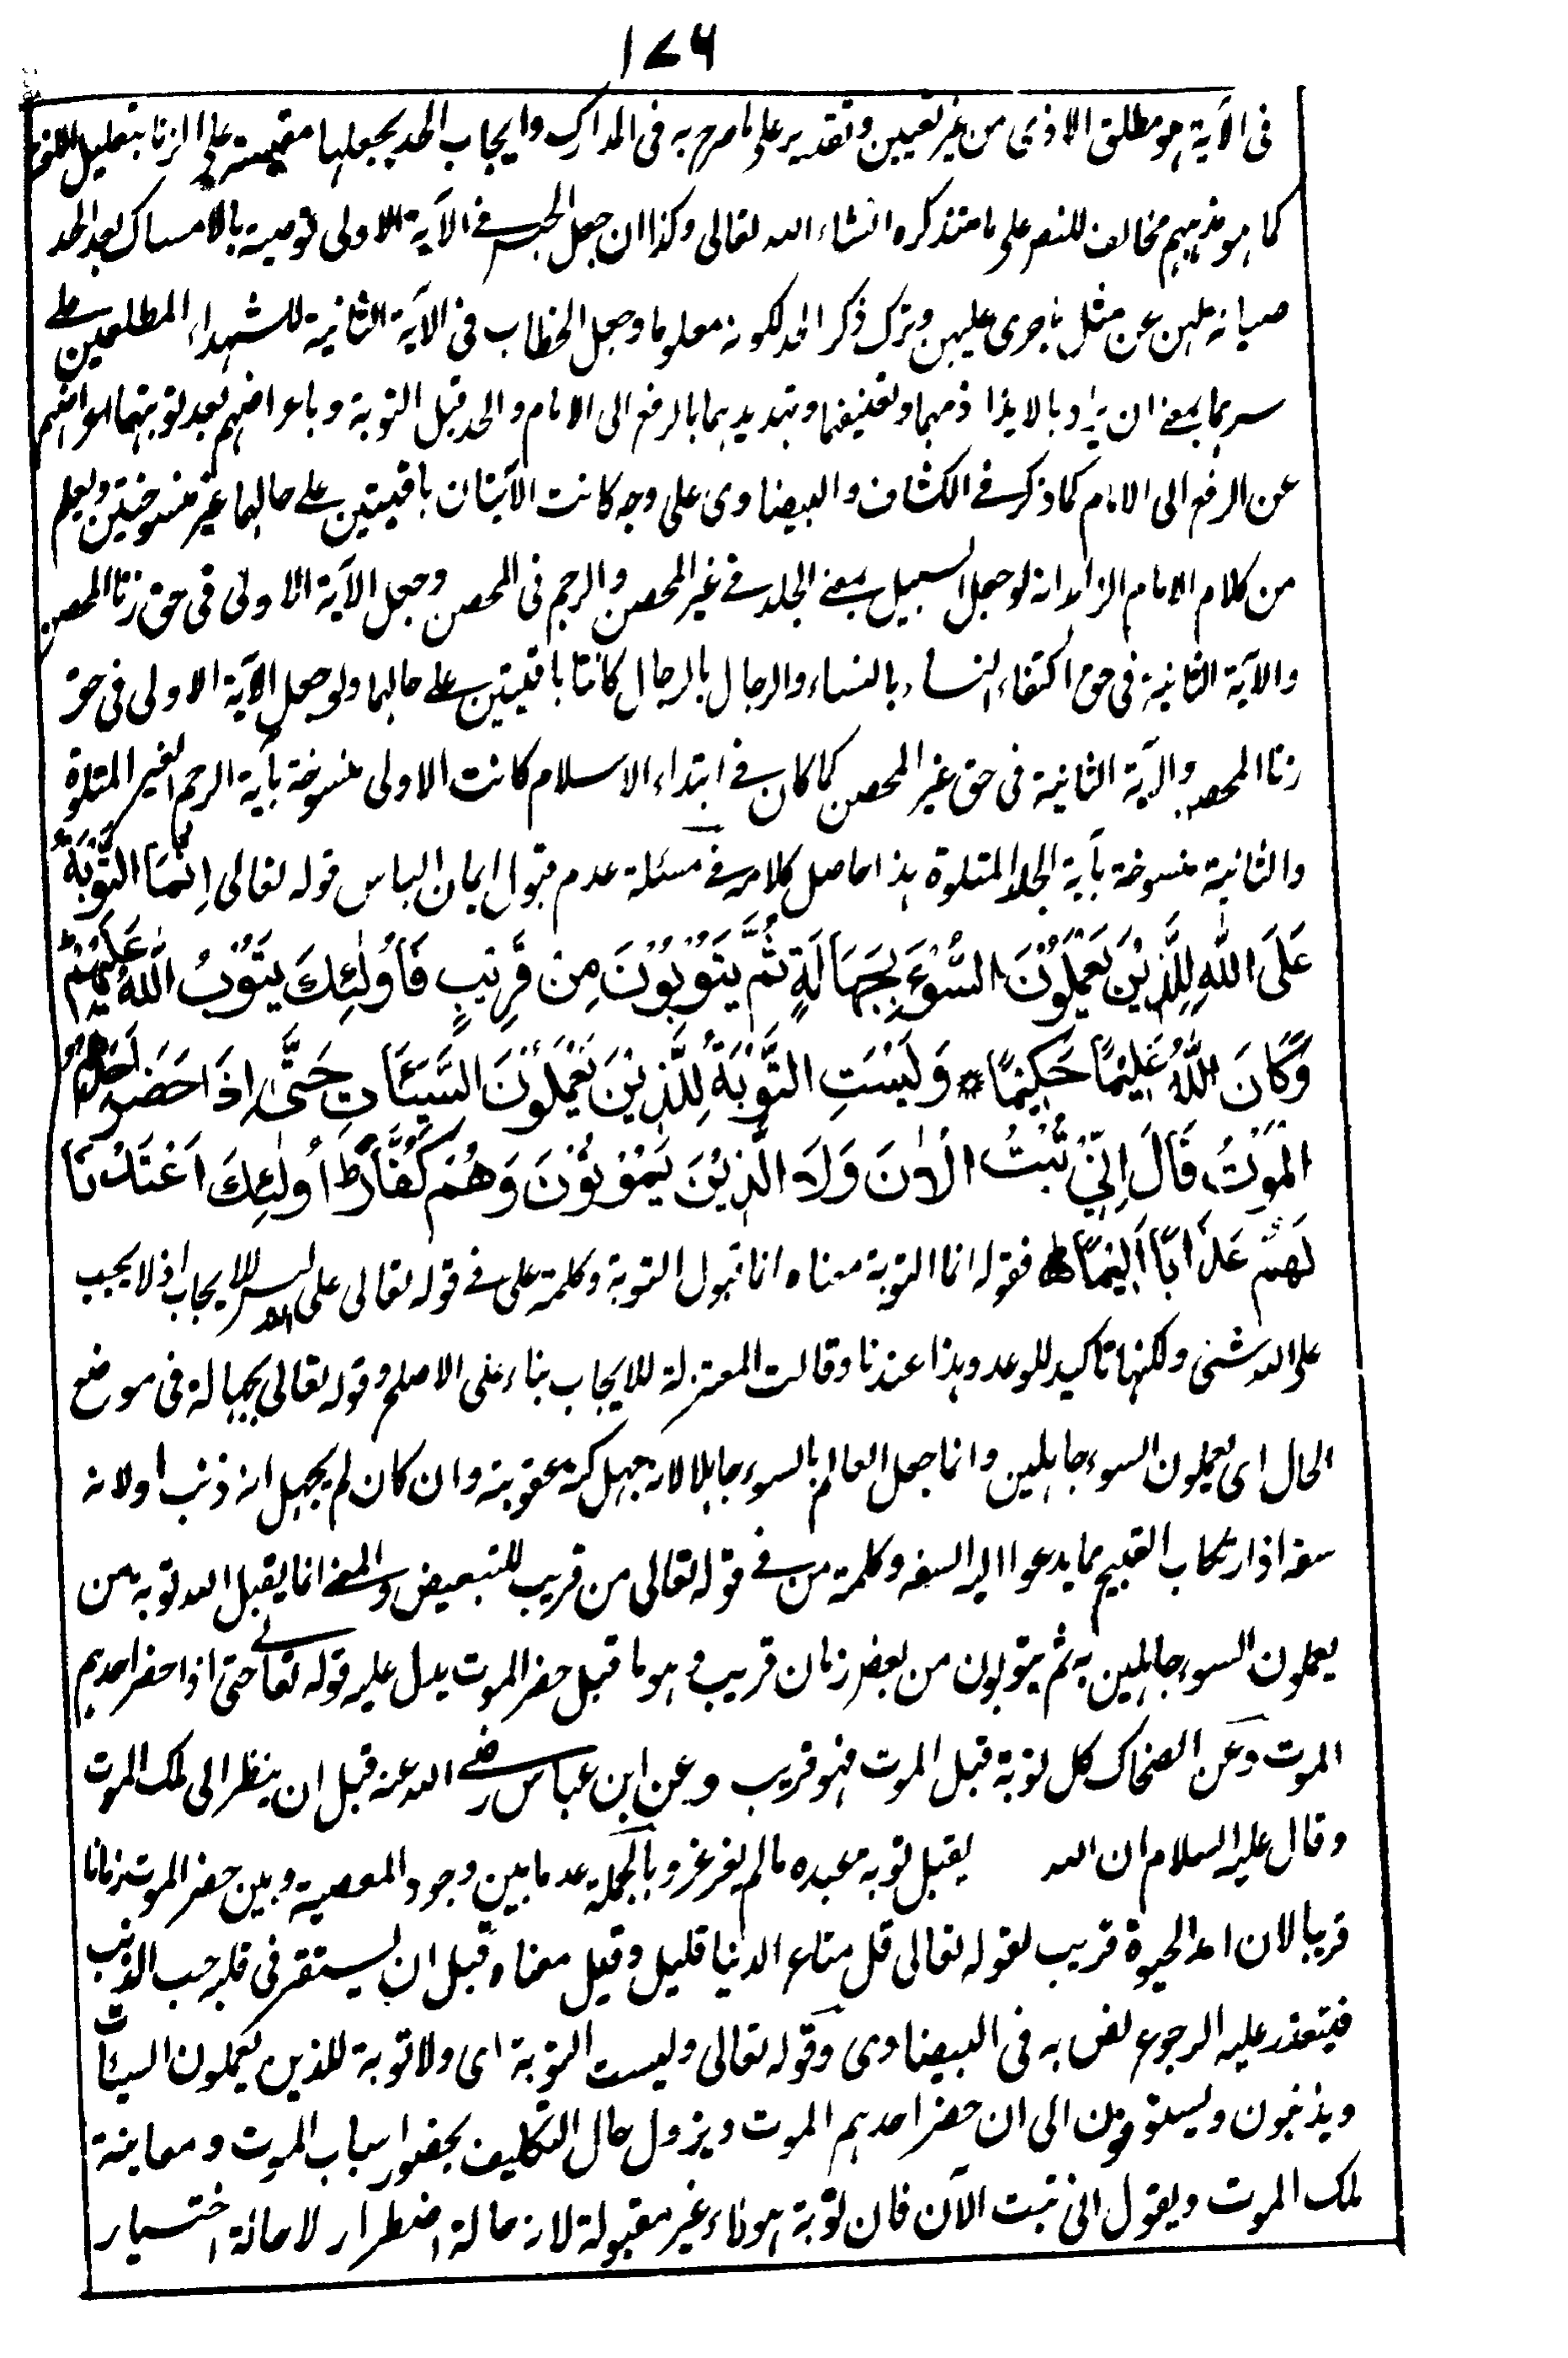 ١٧٦
فى الآية هو مطلق الاذى من غير تعيين وتقدير على ما صرح به فى المدارك وايجاب الحد يجعلها مقيسة على الزنا بتعليل اللغة
كما هو مذهبهم مخالف للنص على ما ستذكره انشاء الله تعالى وكذا ان جعل الحبس فى الآية الاولى توصية بالامساك بعد الحد
صيانة لهن عن مثل ما جرى عليهن وترك ذكر الحد لكونه معلوما وجعل الخطاب فى الآية الثانية للشهداء المطلعين على
سرهما بمعنى ان يراد بالايذاء ذمهما وتعنيفهما وتهديدهما بالرفع الى الامام والحد قبل التوبة وباعراضهم بعد توبتهما اعراضهم
عن الرفع الى الامام كما ذكر فى الكشاف والبيضاوى على وجه كانت الآيتان باقيتين على حالهما غير منسوختين ويعلم
من كلام الامام الزاهد انه لو جعل السبيل بمعنى الجلد فى غير المحصن والرجم فى المحصن وجعل الآية الاولى فى حق زنا المحصن
والآية الثانية فى حق اكتفاء النساء بالنساء والرجال بالرجال كانتا باقيتين على حالهما ولو جعل الآية الاولى فى حق
زنا المحصن والآية الثانية فى حق غير المحصن كما كان فى ابتداء الاسلام كانت الاولى منسوخة بآية الرجم الغير المتلوة
والثانية منسوخة بآية الجلد المتلوة هذا حاصل كلامه فى مسئلة عدم قبول ايمان الباس قوله تعالى اِنَّمَا التَّوْبَةُ
عَلَى اللّٰهِ لِلَّذِيْنَ يَعْمَلُوْنَ السُّوْءَ بِجَهَالَةٍ ثُمَّ يَتُوْبُوْنَ مِنْ قَرِيْبٍ فَاُولٰئِكَ يَتُوْبُ اللّٰهُ عَلَيْهِمْ ط
وَكَانَ اللّٰهُ عَلِيْمًا حَكِيْمًا * وَلَيْسَتِ التَّوْبَةُ لِلَّذِيْنَ يَعْمَلُوْنَ السَّيِّئَاتِ حَتّٰى اِذَا حَضَرَ اَحَدَهُمُ
الْمَوْتُ قَالَ اِنِّيْ تُبْتُ الْاٰنَ وَلَا الَّذِيْنَ يَمُوْتُوْنَ وَهُمْ كُفَّارٌ ط اُولٰئِكَ اَعْتَدْنَا
لَهُمْ عَذَابًا اَلِيْمًا ط فقوله انما التوبة معناه انما قبول التوبة وكلمة على فى قوله تعالى على الله ليس للايجاب اذ لا يجب
على الله شئ ولكنها تاكيد للوعد وهذا عندنا وقالت المعتزلة للايجاب بناء على الاصلح وقوله تعالى بجهالة فى موضع
الحال اى يعملون السوء جاهلين وانما جعل العالم بالسوء جاهلا لانه جهل كنه عقوبته وان كان لم يجهل انه ذنب اولانه
سفه اذ ارتكاب القبيح مما يدعوا اليه السفه وكلمة من فى قوله تعالى من قريب للتبعيض والمعنى انما يقبل الله توبة من
يعملون السوء جاهلين به ثم يتوبون من بعض زمان قريب وهو ما قبل حضر الموت يدل عليه قوله تعالى حتى اذا حضر احدهم
الموت وعن الضحاك كل توبة قبل الموت فهو قريب وعن ابن عباس رضى الله عنه قبل ان ينظر الى ملك الموت
وقال عليه السلام ان الله يقبل توبة عبده ما لم يغرغر وبالجملة عد ما بين وجود المعصية وبين حضر الموت زمانا
قريبا لان امد الحيوة قريب لقوله تعالى قل متاع الدنيا قليل وقيل معناه قبل ان يستقر فى قلبه حب الذنب
فيتعذر عليه الرجوع نص به فى البيضاوى وقوله تعالى وليست التوبة اى ولا توبة للذين يعملون السيئات
ويذنبون ويسوفون الى ان حضر احدهم الموت ويزول حال التكليف بحضور اسباب الموت ومعاينة
ملك الموت ويقول انى تبت الآن فان توبة هولاء غير مقبولة لانه حالة اضطرار لا حالة اختيار